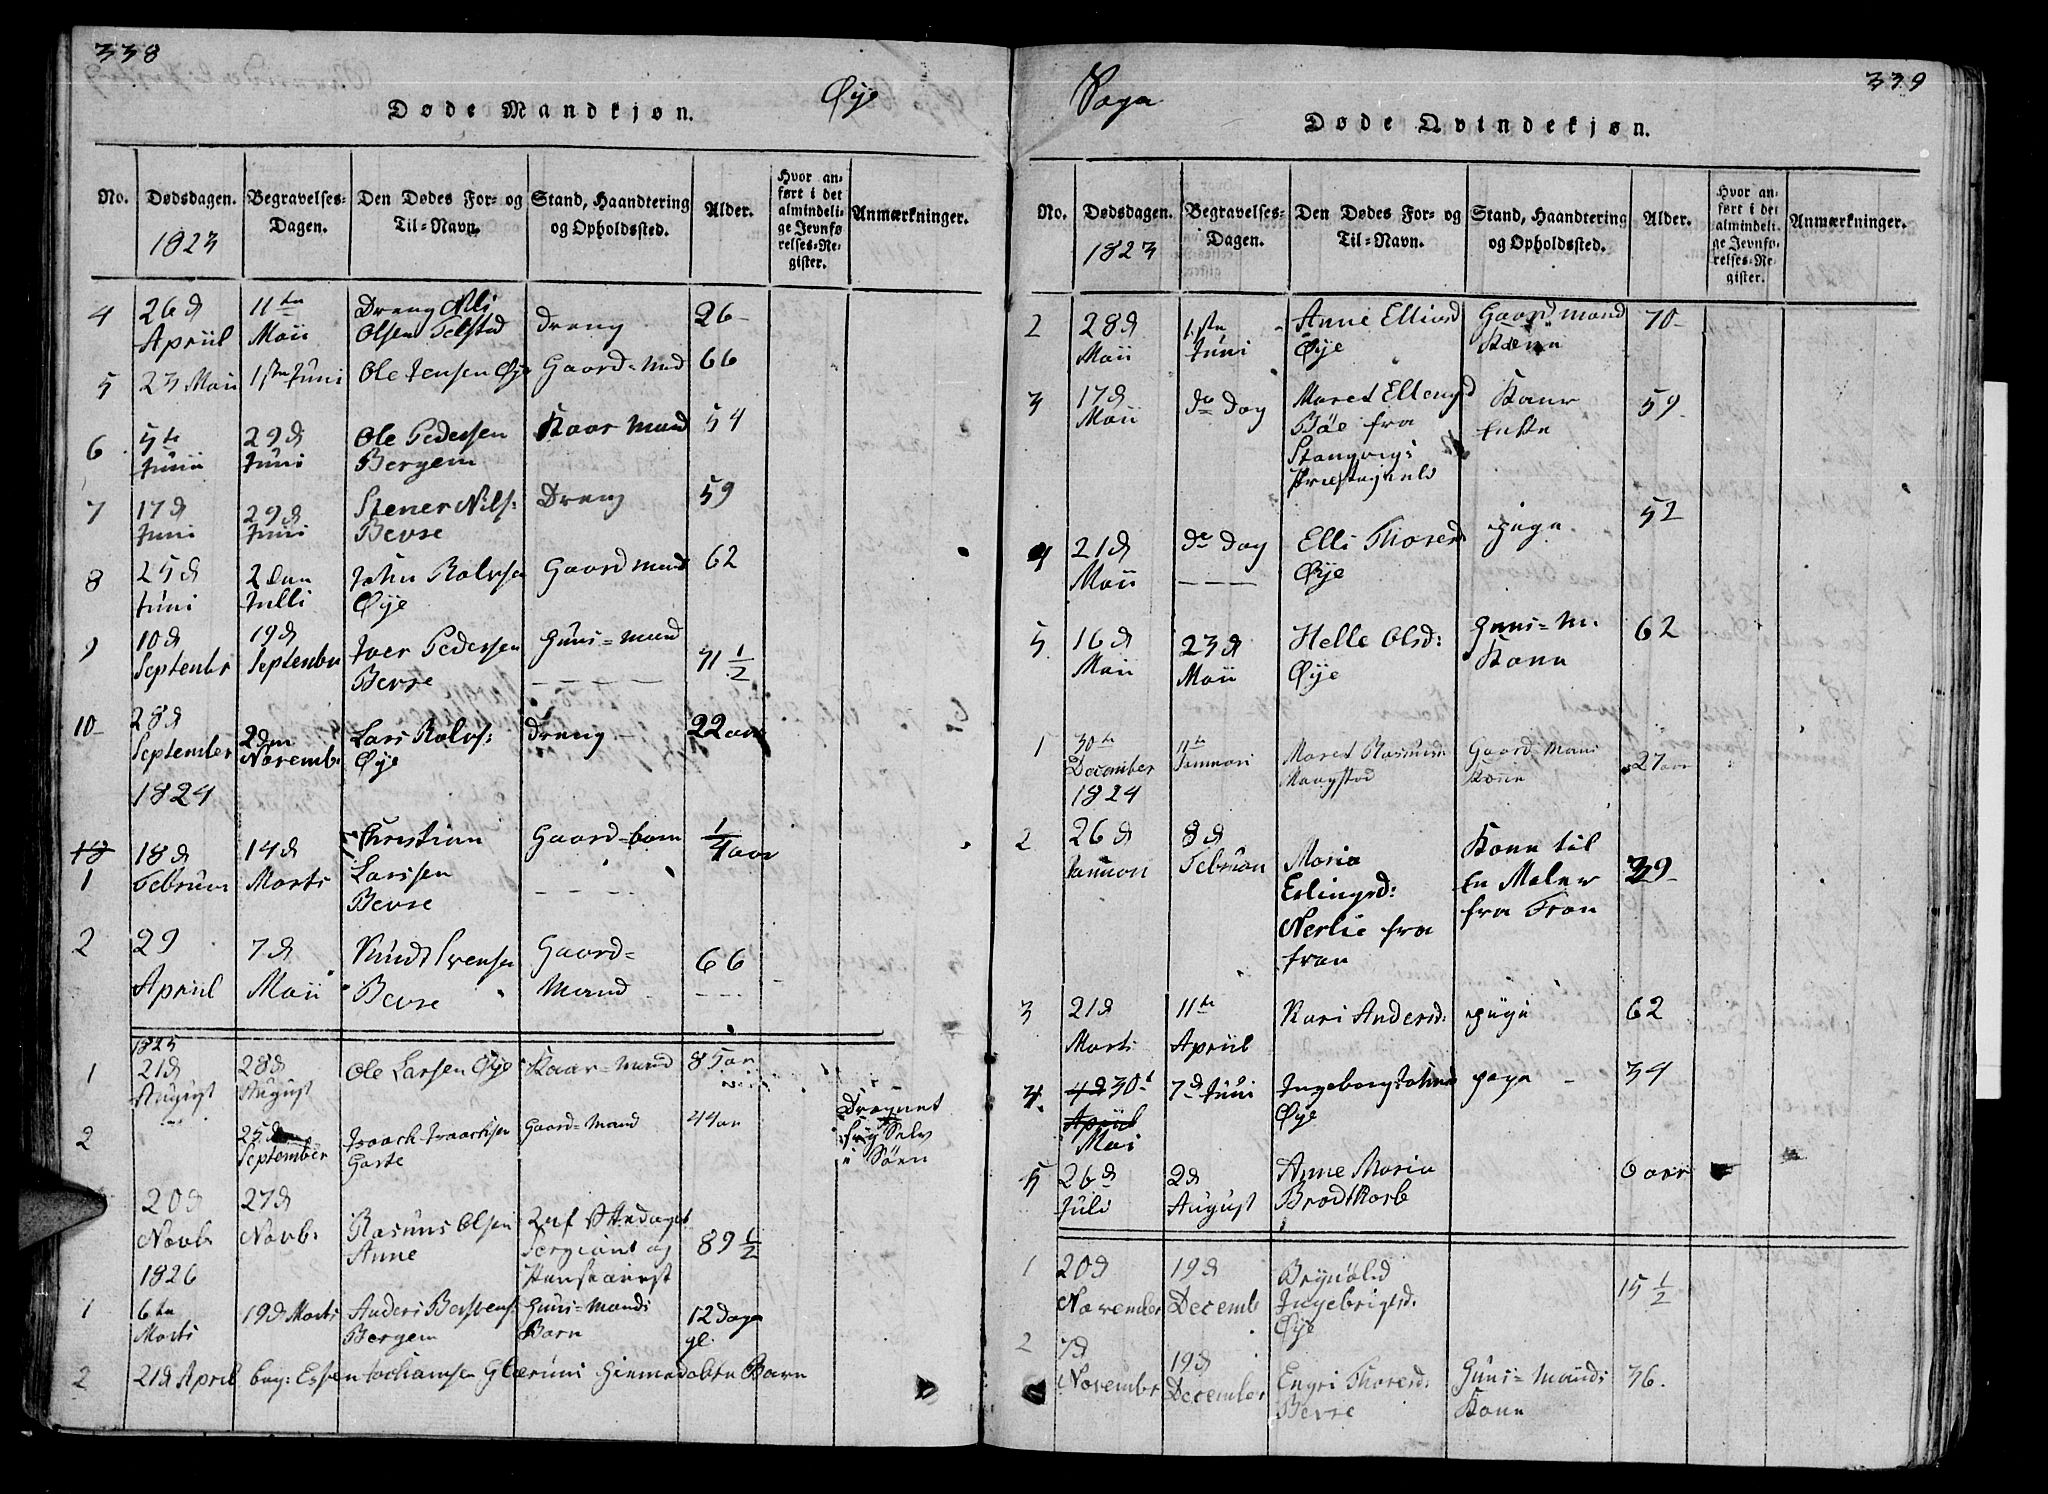 338
Døde Mandkjøn.
Øye
No.
Dødsdagen.
1823
Begravelses-
Dagen.
Den Dødes For- og
Til-Navn.
Stand, Haandtering
og Opholdssted.
Alder.
Hvor an-
ført i det
almindeli-
ge Jevnfø-
relses-Re-
gister.
Anmærkninger.
4
26d
April
11te
Maii
Dreng Nils
Olsen Telstad
Dreng
26
5
23 Maii
1ste Juni
Ole Jensen Øye
Gaord-Md
66
6
5te
Junii
29d
Juni
Ole Pedersen
Bergem
Kaar Mand
54
7
17d
Juni
29d
Juni
Stener Nils:
Bevse
Dreng
59
8
25d
Juni
2den
Julli
John Rolvsen
Øye
Gaord mand
62
9
10d
September
19d
September
Iver Pedersen
Bevse
Huus=mand
71 1/2
10
28d
September
2den
Novemb
Lars Rolvs:
Øye
Dreng
22 aar
1824
10
1
18d
Februar
14d
Marts
Christian
Larssen
Bevse
Gaord-barn
1/4 aar
2
29
April
7d
Maii
Knudt Svensen
Bevse
Gaord=
Mand
66
1825
1
21d
August
28d
August
Ole Larsen Øye
Kaar-mand
85 aar
2
25d
September
Isaach Isaachsen
Garte
Gaord-Mand
44 aar
Dragnet
sig Selv
i Søen
20d
Novb
27d
Novb:
Rasmus Olsen
Anne
Sergiant og
89 1/2
1826
1
6te
Marts
19d Marts
Anders
Bergem
Huus-Mands
Barn
12 Dage
gl.
2
21d April
beg: Espen Johansen Glærums Hiemedøbte Barn
Sogn
339
Døde Qvindekjøn.
No.
Dødsdagen.
1823
Begravelses-
Dagen.
Den Dødes For- og
Til-Navn.
Stand, Haandtering
og Opholdssted.
Alder.
Hvor an-
ført i det
almindeli-
ge Jevnfø-
relses-Re-
gister.
Anmærkninger.
2
28d
Maii
1ste
Juni
Anne Ellivsd
Øye
Gaord mand
Kone
70
3
17d
Maii
do Dag
Maret Ellengsd
Bøe fra
Stangvigs
Præstegield
Kaar
Enke
59
4
21d
Maii
do Dag
Elli Thoresd
Øye
pige
52
5
16d
Maii
23d
Maii
Helle Olsd:
Øye
Huus=M.
Kone
62
1
30te
December
11te
Januari
Maret Rasmusd
Kaagstad
Gaord Mans
Kone
27 aar
1824
2
26d
Januari
8d
Februari
Maria
Erlingsd:
Nerlie fra
Fron
Kone til
En Maler
fra Fron
39
3
21d
Marts
11te
April
Kari Andersd:
pige
62
4
4d 30t
April
Mai
7d Juni
Ingeborg Johnsd
Øye
pige
34
5
26d
Juli
2d
August
Anne Maria
Brodtkorb
0 aar
1
20d
November
19d
Decemb
Brynild
Ingebrigtsd.
Øye
15 1/2
2
7d
November
19d
December
Engri Thoresd:
Bevse
Huus=Mands
Kone
36.